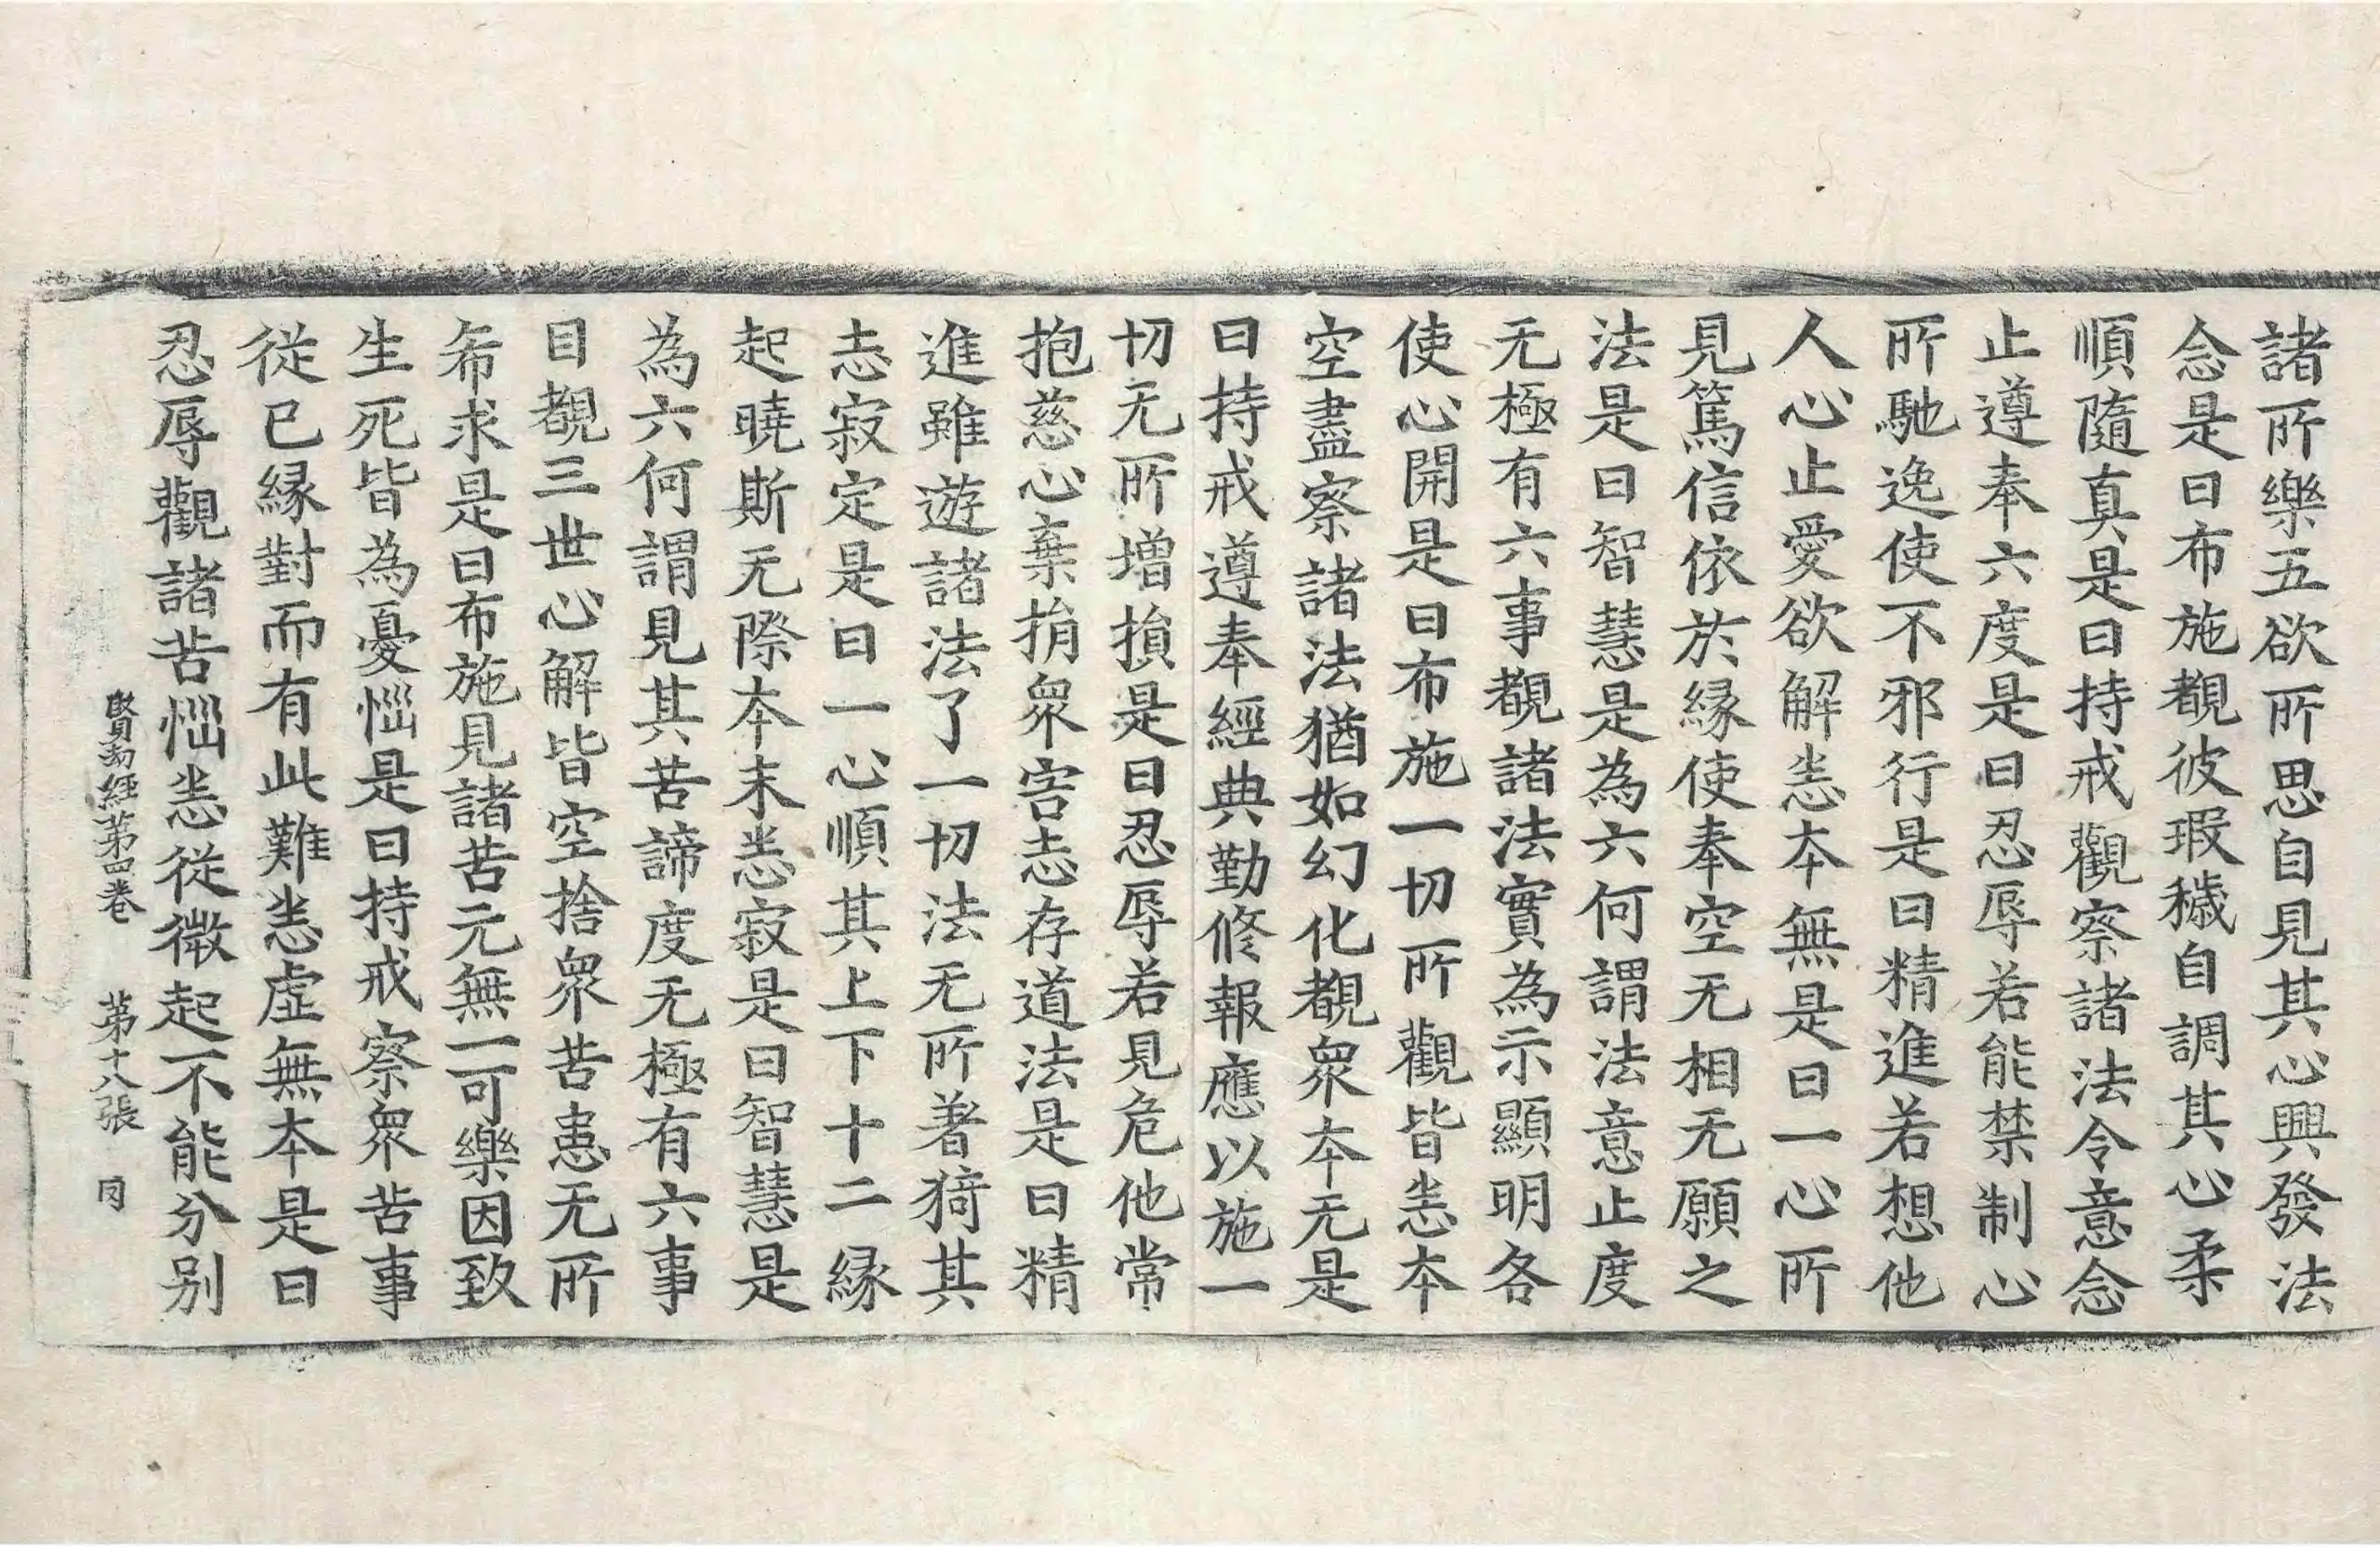 諸所樂五欲所思自見其心興發法
念是曰布施覩彼瑕穢自調其心柔
順隨真是曰持戒觀察諸法令意念
止遵奉六度是曰忍辱若能禁制心
所馳逸使不邪行是曰精進若想他
人心止愛欲解恙本無是曰一心所
見篤信依於緣使奉空无相无願之
法是曰智慧是為六何謂法意止度
无極有六事覩諸法實為示顯明各
使心開是曰布施一切所觀皆恙本
空盡察諸法猶如幻化覩衆本无是
曰持戒遵奉經典勤修報應以施一
切无所增損是曰忍辱若見危他常
抱慈心棄捐衆害志存道法是曰精
進雖遊諸法了一切法无所著猗其
志寂定是曰一心順其上下十二緣
起曉斯无際本末恙寂是曰智慧是
為六何謂見其苦諦度无極有六事
目覩三世心解皆空捨衆苦患无所
希求是曰布施見諸苦元無一可樂因致
生死皆為憂惱是曰持戒察衆苦事
從已緣對而有此難恙虛無本是曰
忍辱觀諸苦惱恙從微起不能分別
賢劫經第四卷 第十八張 同